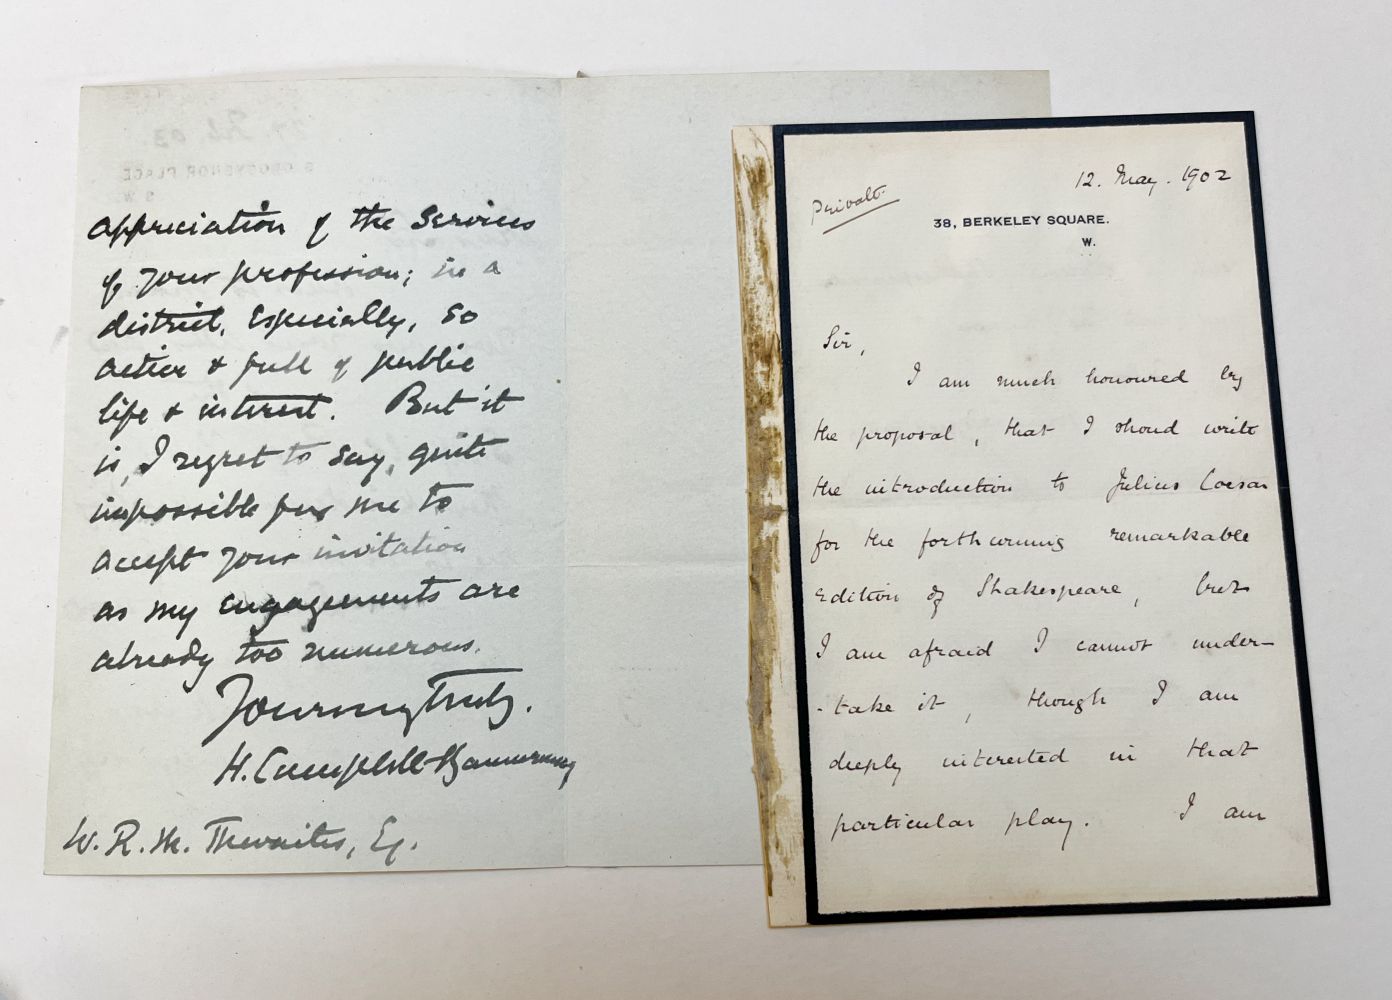 appreciation of the services
of your profession; in a
district, especially, so
active & full of public
life & interest. But it
is, I regret to say, quite
impossible for me to
accept your invitation
as my engagements are
already too numerous.
Yours very truly.
H. Campbell-Bannerman
W. R. M. Thwaites, Esq.
27. Feb. 03.
GROSVENOR PLACE
S.W.
12. May. 1902
Private.
38, BERKELEY SQUARE.
W.
Sir,
I am much honoured by
the proposal, that I shoud write
the introduction to Julius Caesar
for the forthcoming remarkable
edition of Shakespeare, but
I am afraid I cannot under-
-take it, though I am
deeply interested in that
particular play. I am